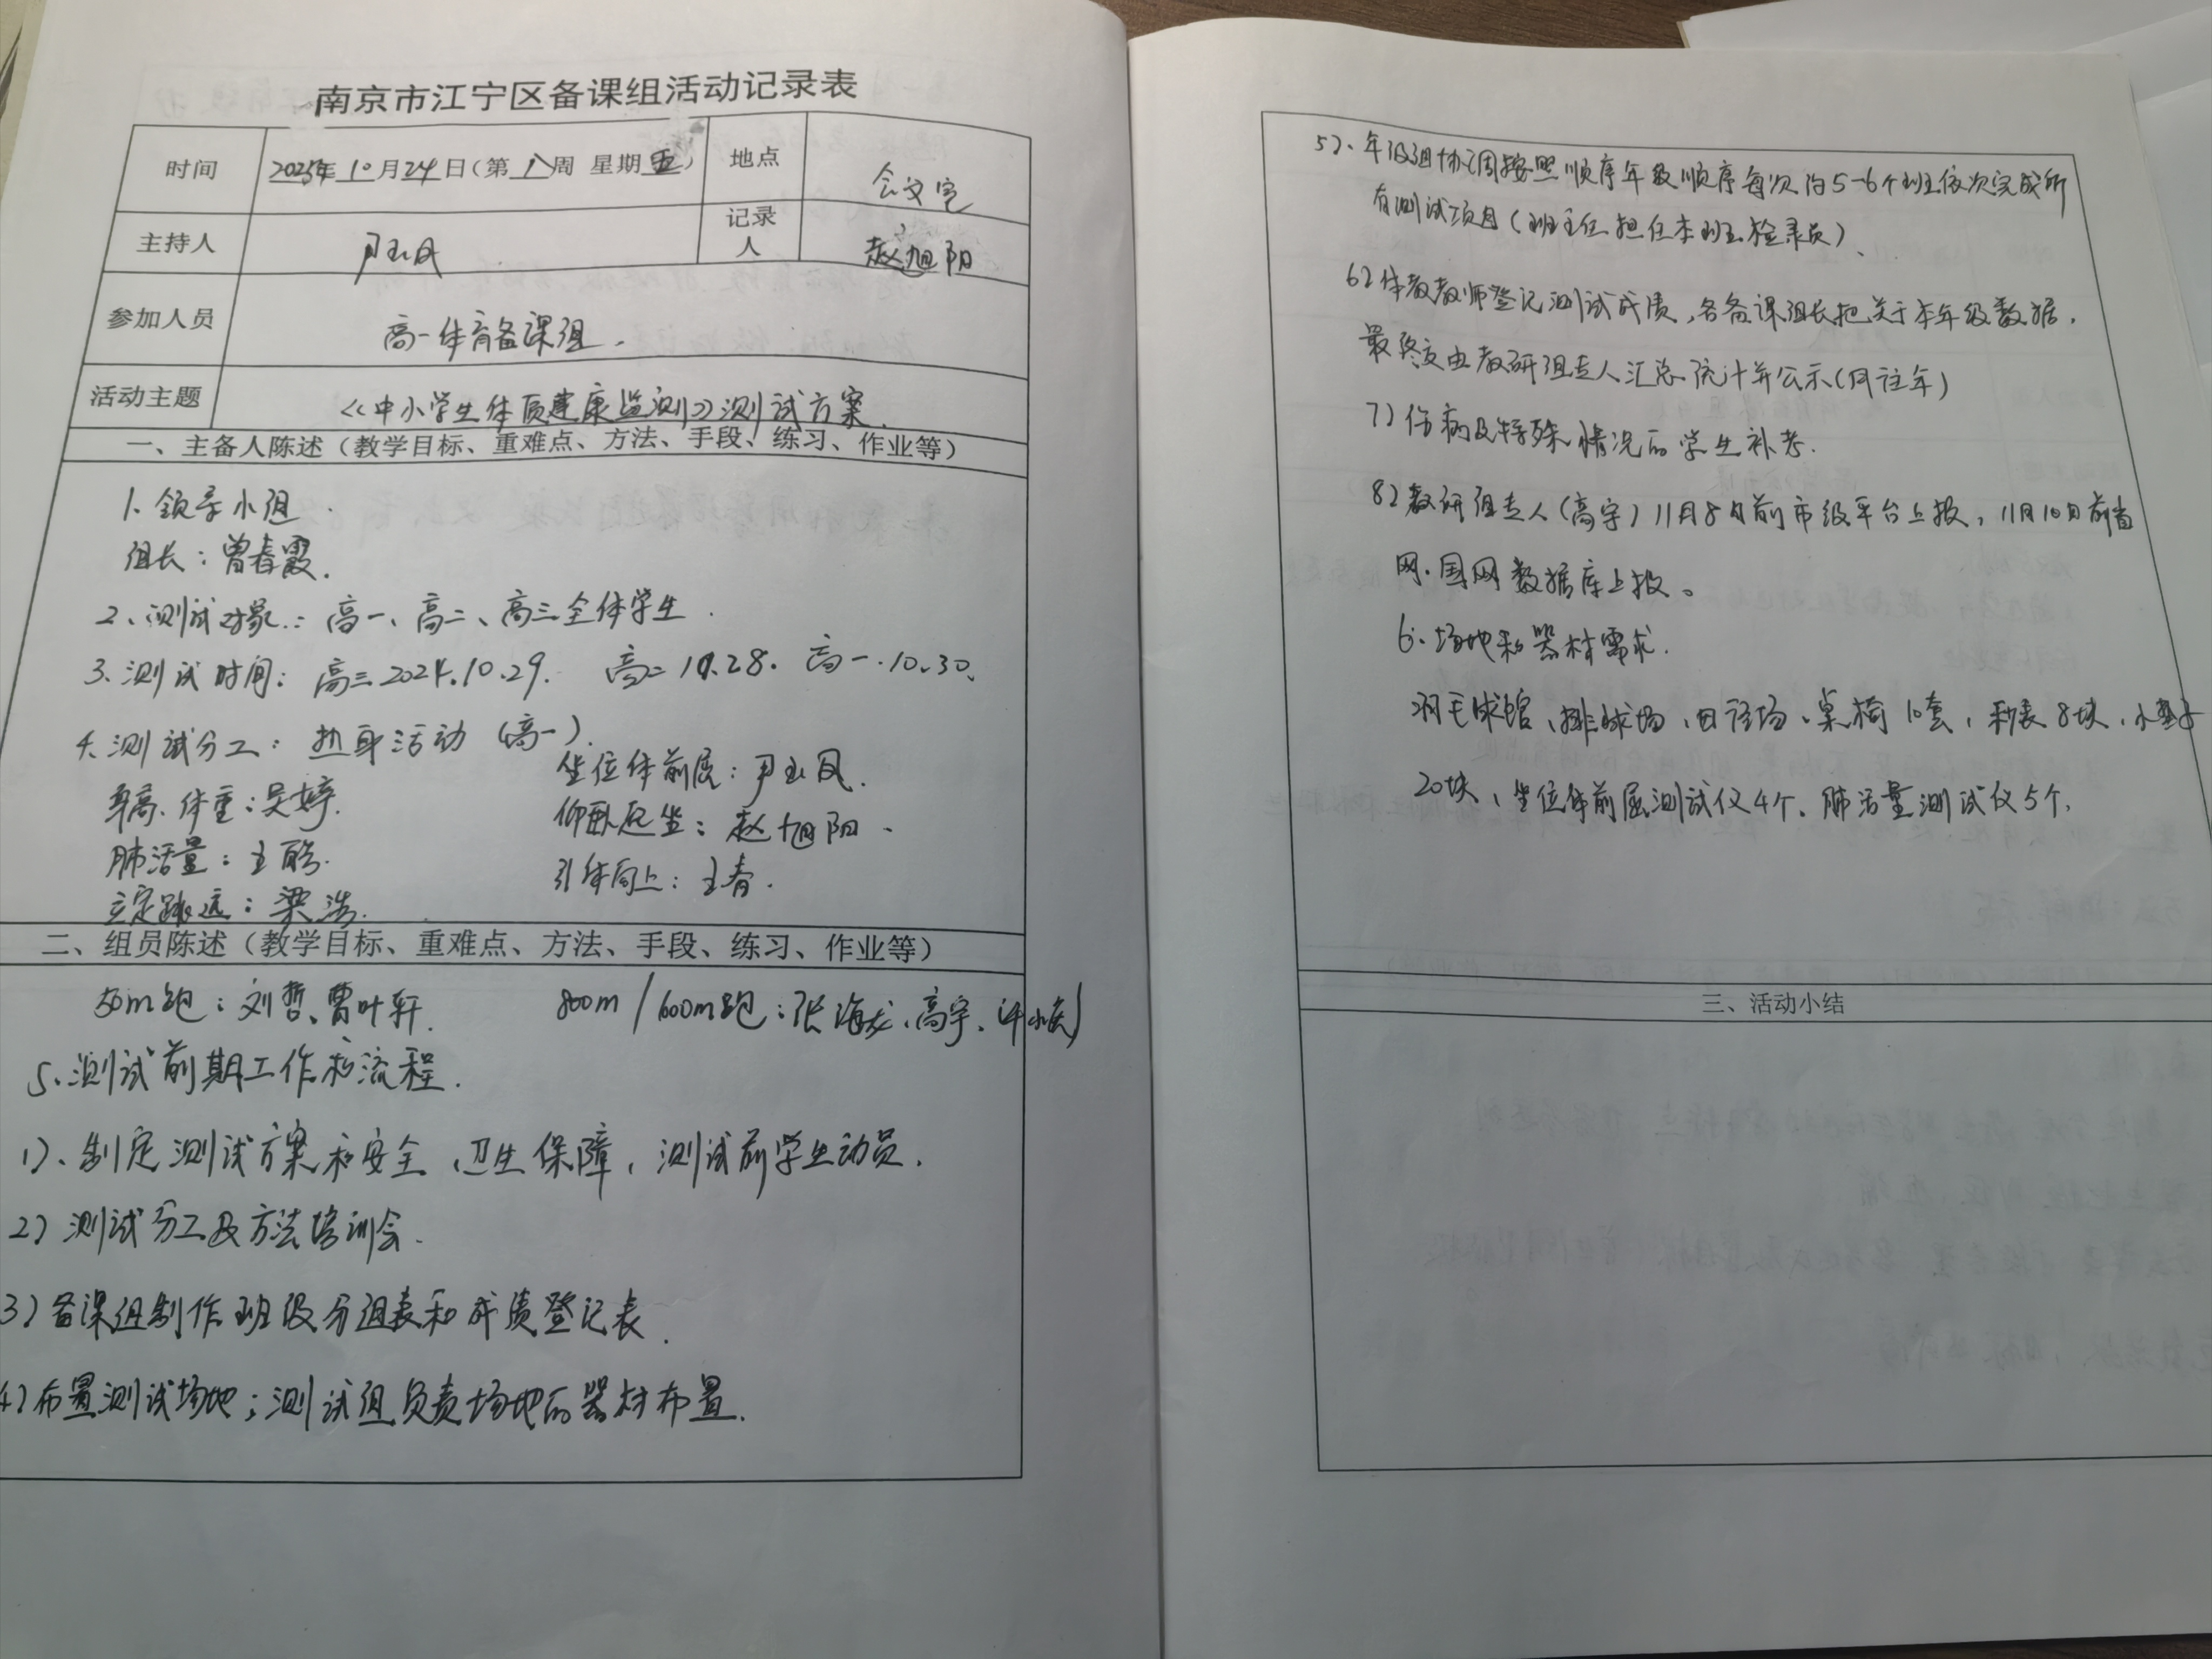 南京市江宁区备课组活动记录表
时间 2025年10月24日（第 周 星期五） 地点 会议室
主持人 尹玉凤 记录人 赵旭阳
参加人员 高一体育备课组.
活动主题 《中小学生体质健康监测》测试方案.
一、主备人陈述（教学目标、重难点、方法、手段、练习、作业等）
1. 领导小组.
组长：曾春霞.
2、测试对象：高一、高二、高三全体学生.
3、测试时间：高三2024.10.29. 高二10.28. 高一.10.30、
4.测试分工：热身活动（高一）.
身高、体重：吴婷. 坐位体前屈：尹玉凤.
肺活量：王 仰卧起坐：赵旭阳、
立定跳远：梁浩. 引体向上：王春.
二、组员陈述（教学目标、重难点、方法、手段、练习、作业等）
50m跑：刘哲、曹叶轩. 800m/1000m跑：张海龙、高宇、
5、测试前期工作和流程.
1）、制定测试方案和安全、卫生保障，测试前学生动员.
2）测试分工及方法培训会.
3）备课组制作班级分组表和成绩登记表.
4）布置测试场地；测试组负责场地的器材布置.
5）、年级组协调按照顺序年级顺序每次约5-6个班依次完成所
有测试项目（班主任担任本班检录员）、
6）体教教师登记测试成绩，各备课组长把关于本年级数据，
最终交由教研组专人汇总统计并公示（同往年）
7）伤病及特殊情况的学生补考.
8）教研组专人（高宇）11月8日前市级平台上报，11月10日前省
网.国网数据库上报。
6、场地和器材需求.
羽毛球馆、排球场、田径场、桌椅10套，秒表8块、小垫子
20块、坐位体前屈测试仪4个、肺活量测试仪5个.
三、活动小结